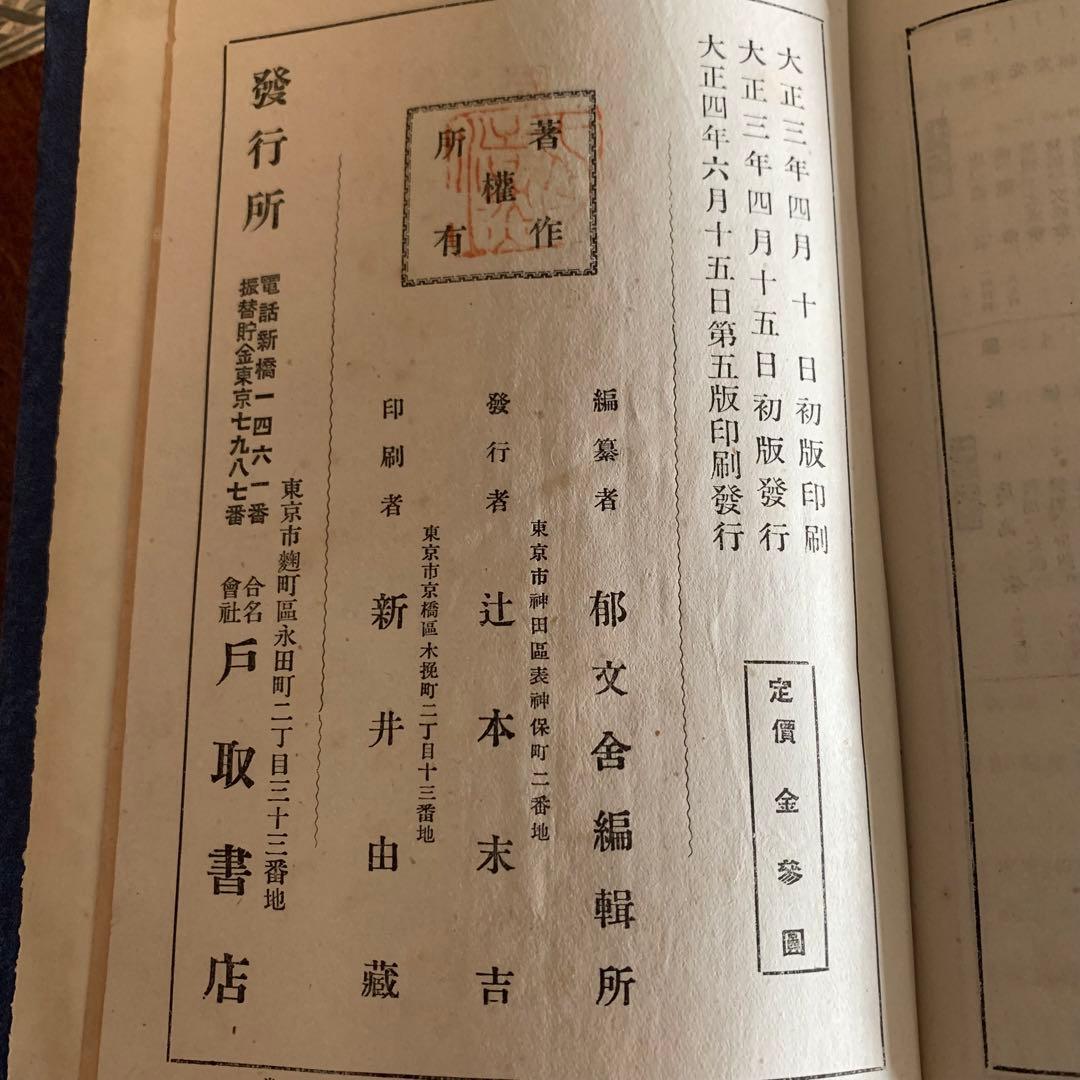 大正三年四月十日初版印刷
大正三年四月十五日初版發行
大正四年六月十五日第五版印刷發行
定價金參圓
著作
權
所有
編纂者
郁文舍編輯所
東京市神田區表神保町二番地
發行者
辻本末吉
東京市京橋區木挽町二丁目十三番地
印刷者
新井由藏
東京市麴町區永田町二丁目三十三番地
發行所
電話新橋一四六一番
振替貯金東京七九八七番
合名
會社
戶取書店